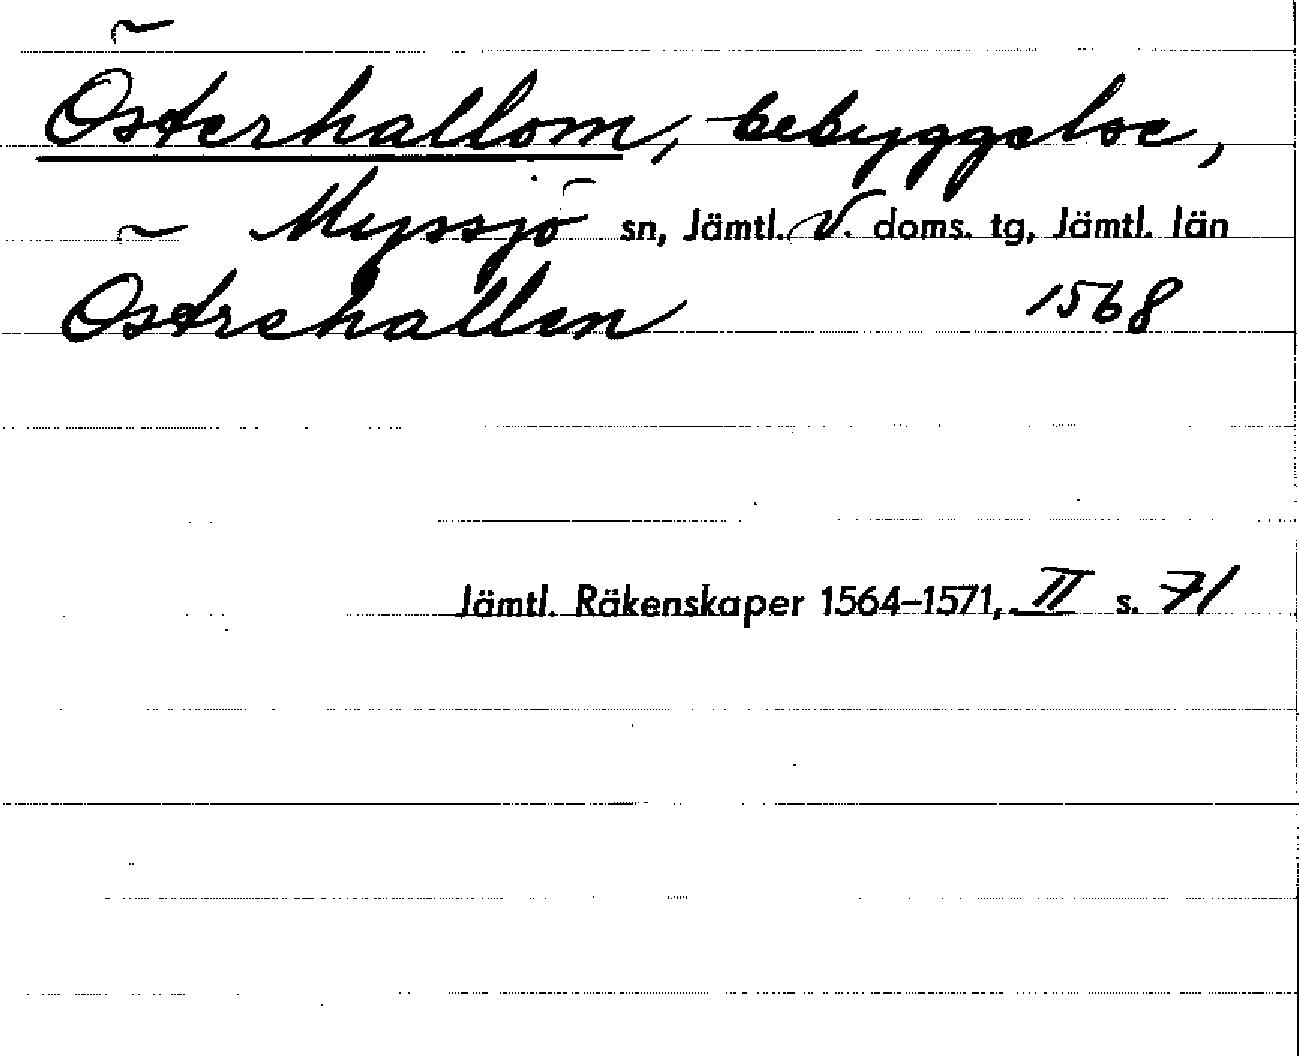 Österhallom, bebyggelse,
Myssjö sn, Jämtl. V. doms. tg, Jämtl. län
Östrehallen 1568
Jämtl. Räkenskaper 1564–1571, II s. 71